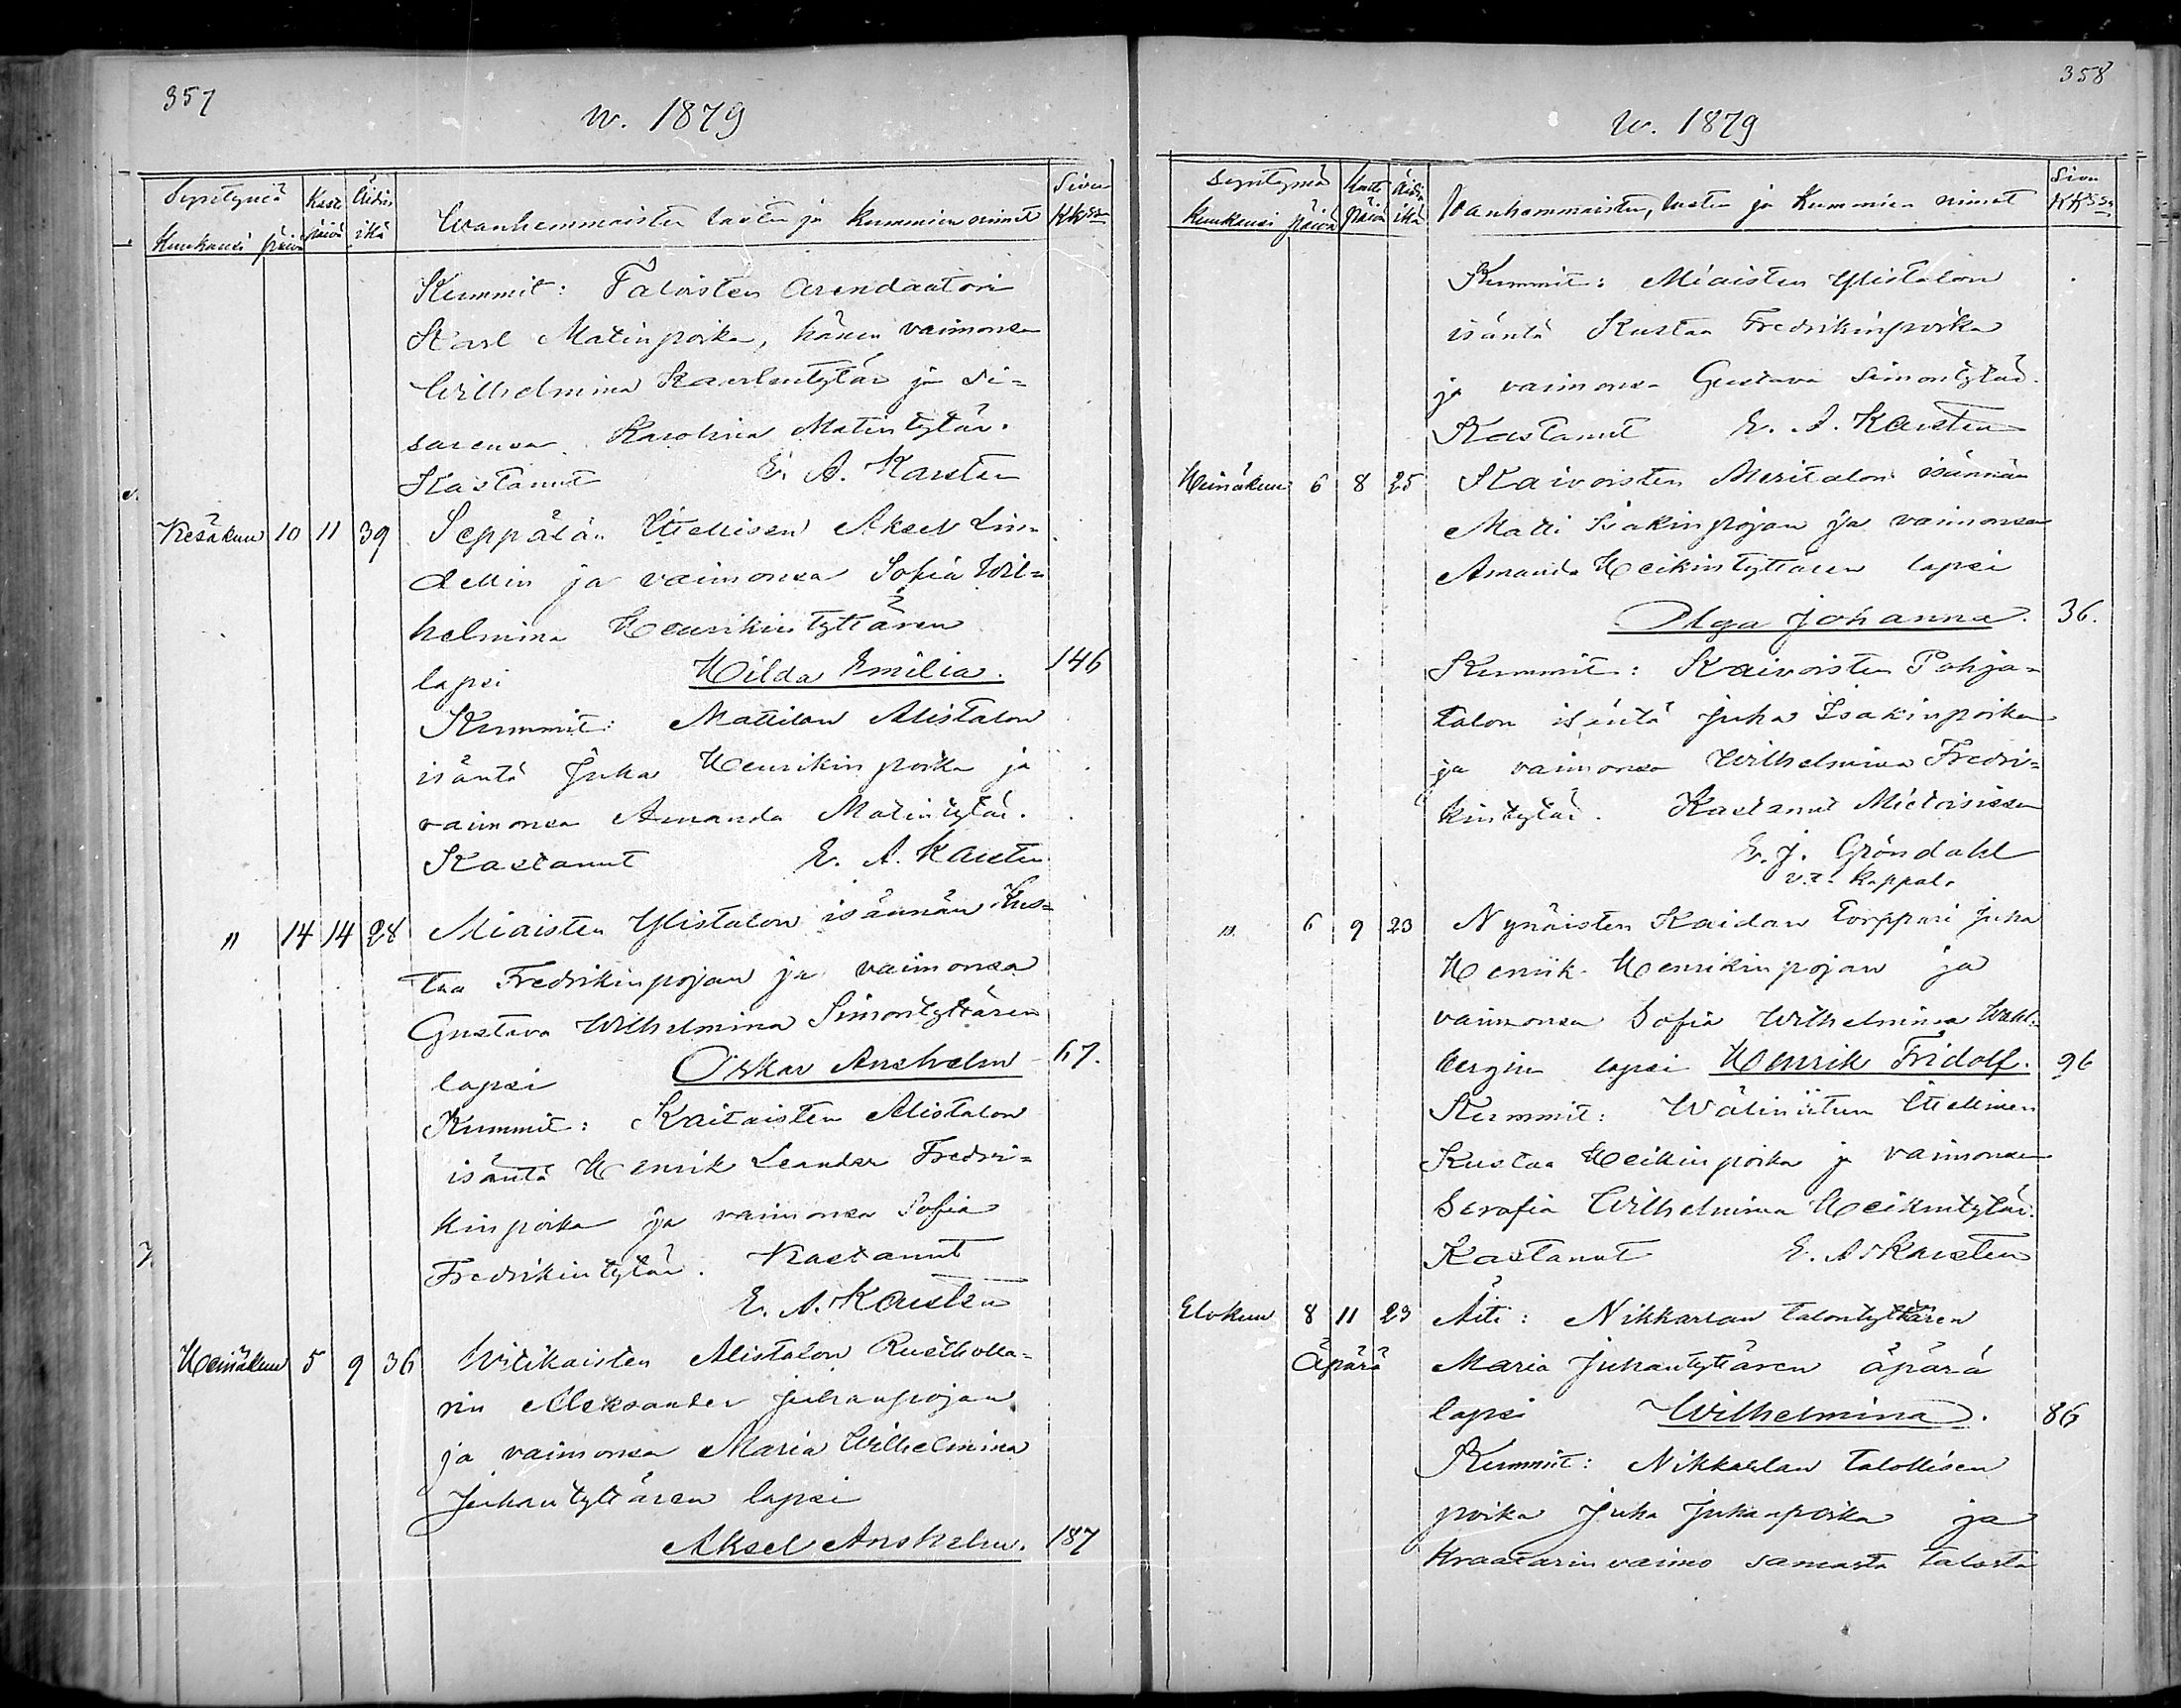 357
w. 1879
Syntymä Kast Äidin Wanhemmaisten lasten ja Kummien nimet Sivu
Kuukausi päivä päivä ikä KKssa
Kummit: Taloisten Arendaatori
Karl Matinpoika, hänen vaimonsa
Wilhelmina Kaarlentytär ja si=
sarensa Karolina Matintytär.
Kastanut E. A. Karsten
Kesäkuu 10 11 39 Seppälän Itsellisen Aksel Lin=
dellin ja vaimonsa Sofia Wil=
helmina Henrikintyttären
lapsi Hilda Emilia. 146
Kummit: Mattilan Alistalon
isäntä Juha Henrikinpoika ja
vaimonsa Amanda Matintytär.
Kastanut E. A. Karsten
" 14 14 28 Miaisten Ylistalon isännän Kus=
taa Fredrikinpojan ja vaimonsa
Gustava Wilhelmina Simontyttären
lapsi Oskar Anshelm 67.
Kummit: Kaitaisten Alistalon
isäntä Henrik Leander Fredri=
kinpoika ja vaimonsa Sofia
Fredrikintytär. Kastanut
E. A. Karsten
Heinäkuu 5 9 36 Witikaisten Alistalon Rustholla=
rin Aleksander Juhanpojan
ja vaimonsa Maria Wilhelmina
Juhantyttären lapsi
Aksel Anshelm. 187
358
w. 1879
Syntymä Kaste Äidin Vanhemmaisten, lasten ja Kummien nimet Sivu
Kuukausi päivä päivä ikä KKssa
Kummit: Miaisten Ylistalon
isäntä Kustaa Fredrikinpoika
ja vaimonsa Gustava Simontytär.
Kastanut E. A. Karsten
Heinäkuu 6 8 25 Kaivoisten Meritalon isännän
Matti Isakinpojan ja vaimonsa
Amanda Heikintyttären lapsi
Olga Johanna. 36.
Kummit: Kaivoisten Pohja=
talon isäntä Juha Isakinpoika
ja vaimonsa Wilhelmina Fredri=
kintytär. Kastanut Mietoisissa
E. J. Gröndahl
v.t. Kappal.
" 6 9 23 Nynäisten Kaidan torppari Juha
Henrik Henrikinpojan ja
vaimonsa Sofia Wilhelmina Wahl=
bergin lapsi Henrik Fridolf. 96
Kummit: Wäliniitun Itsellinen
Kustaa Heikinpoika ja vaimonsa
Serafia Wilhelmina Heikintytär.
Kastanut E. A. Karsten
Elokuu 8 11 23 Äiti: Nikkarlan talontyttären
Äpärä Maria Juhantyttären äpärä
lapsi Wilhelmina. 86
Kummit: Nikkarlan talollisen
poika Juha Juhanpoika ja
Kraatarin vaimo samasta talosta